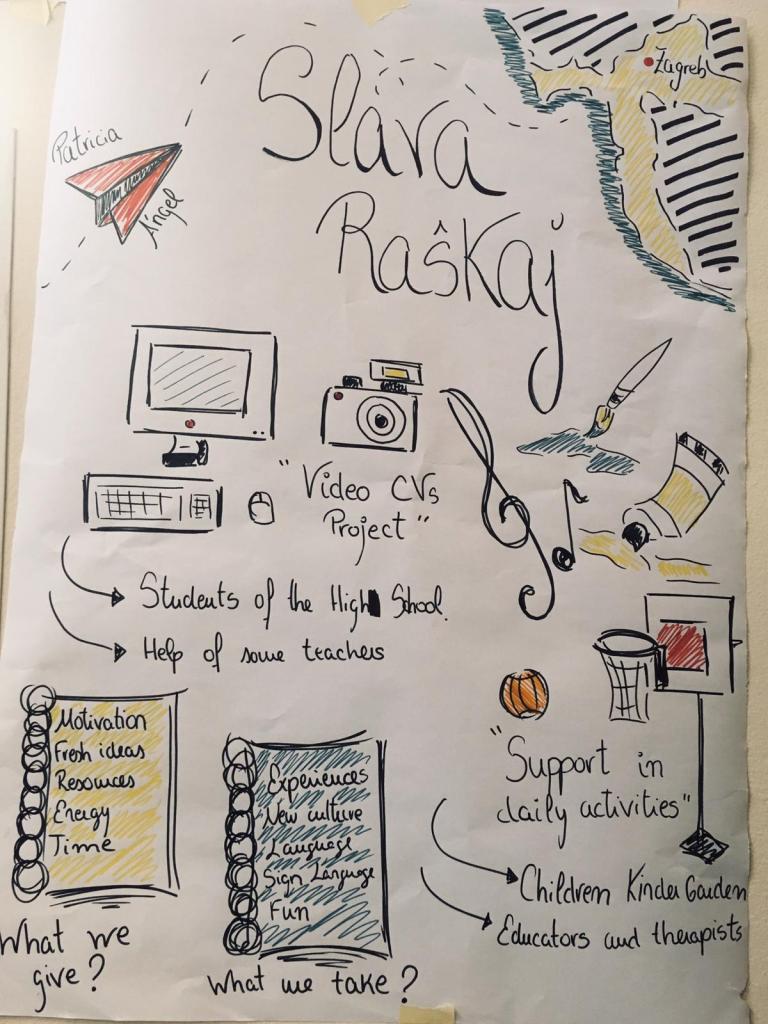 Slava
Raŝkaj
Zagreb
Patricia
Ángel
"Video CVs
Project"
Students of the High School.
Help of some teachers
Motivation
Fresh ideas
Resources
Energy
Time
What we
give?
Experiences
New culture
Language
Sign Language
Fun
What we take?
"Support in
daily activities"
Children Kinder Garden
Educators and therapists